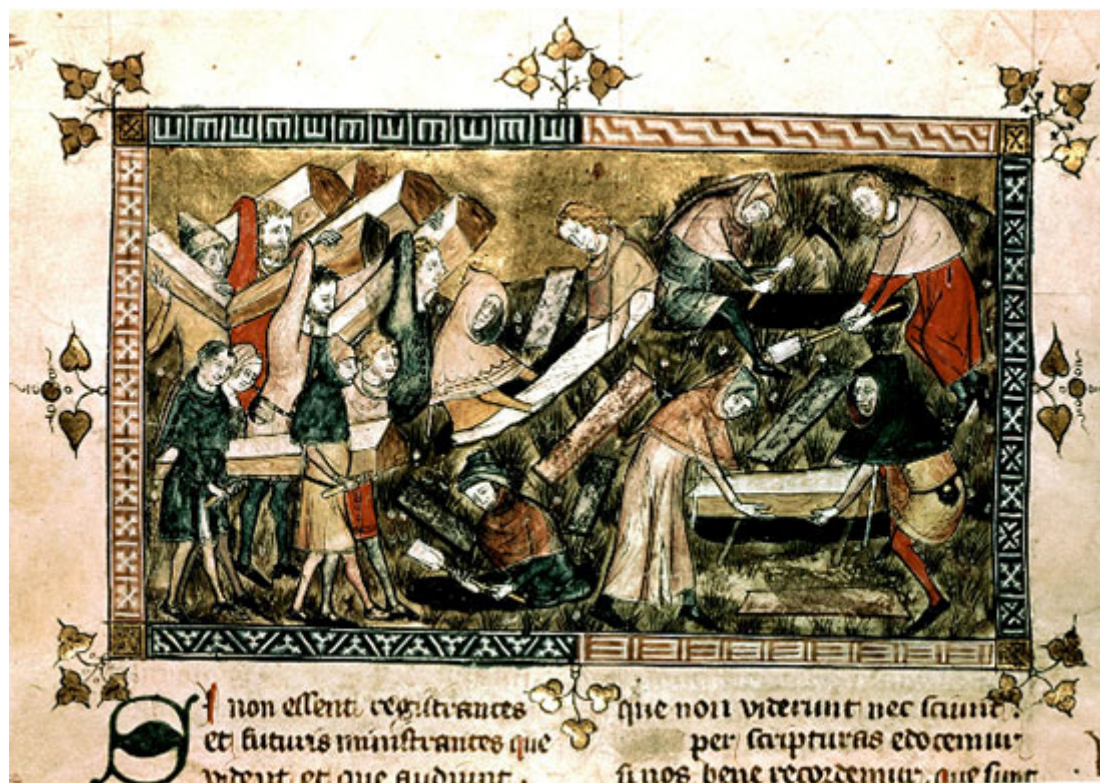 SI non essent registrantes
et futuris ministrantes que
vident et que audiunt.
que non viderunt nec sciunt.
per scripturas edocemur
si nos bene recordemur. que